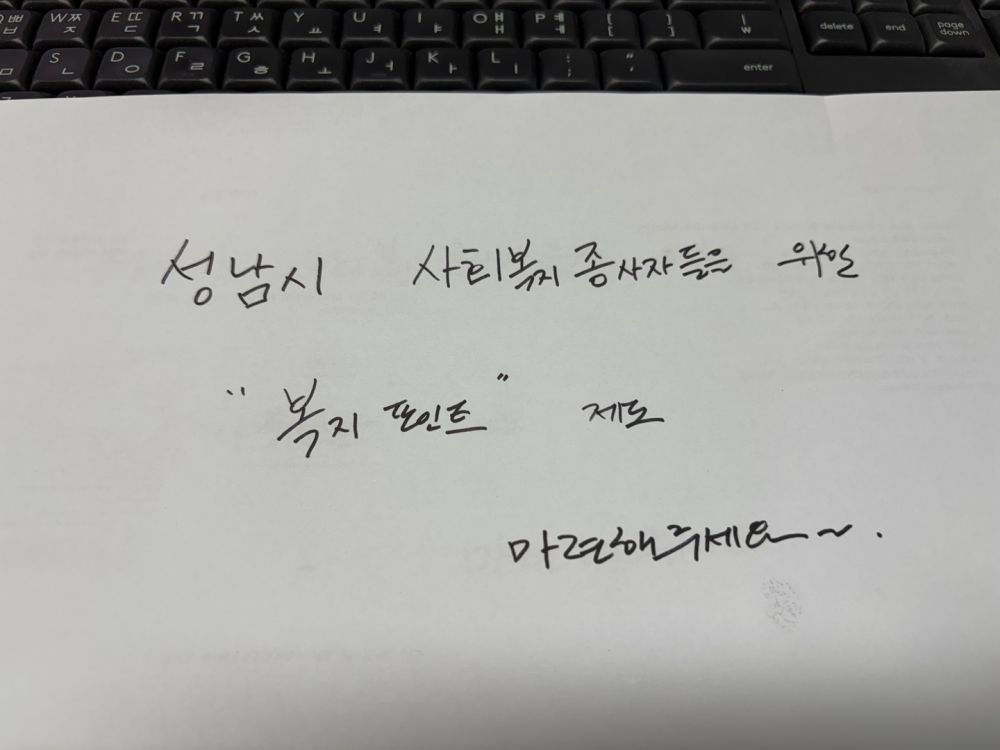 W ㅉ ㅈ E ㄸ ㄷ R ㄲ ㄱ T ㅆ ㅅ Y ㅛ U ㅕ I ㅑ O ㅒ ㅐ P ㅖ ㅔ { [ } ] | \ ₩ delete end page down
S ㄴ D ㅇ F ㄹ G ㅎ H ㅗ J ㅓ K ㅏ L ㅣ : ; " ' enter
성남시 사회복지 종사자들을 위한
"복지 포인트" 제도
마련해주세요~.